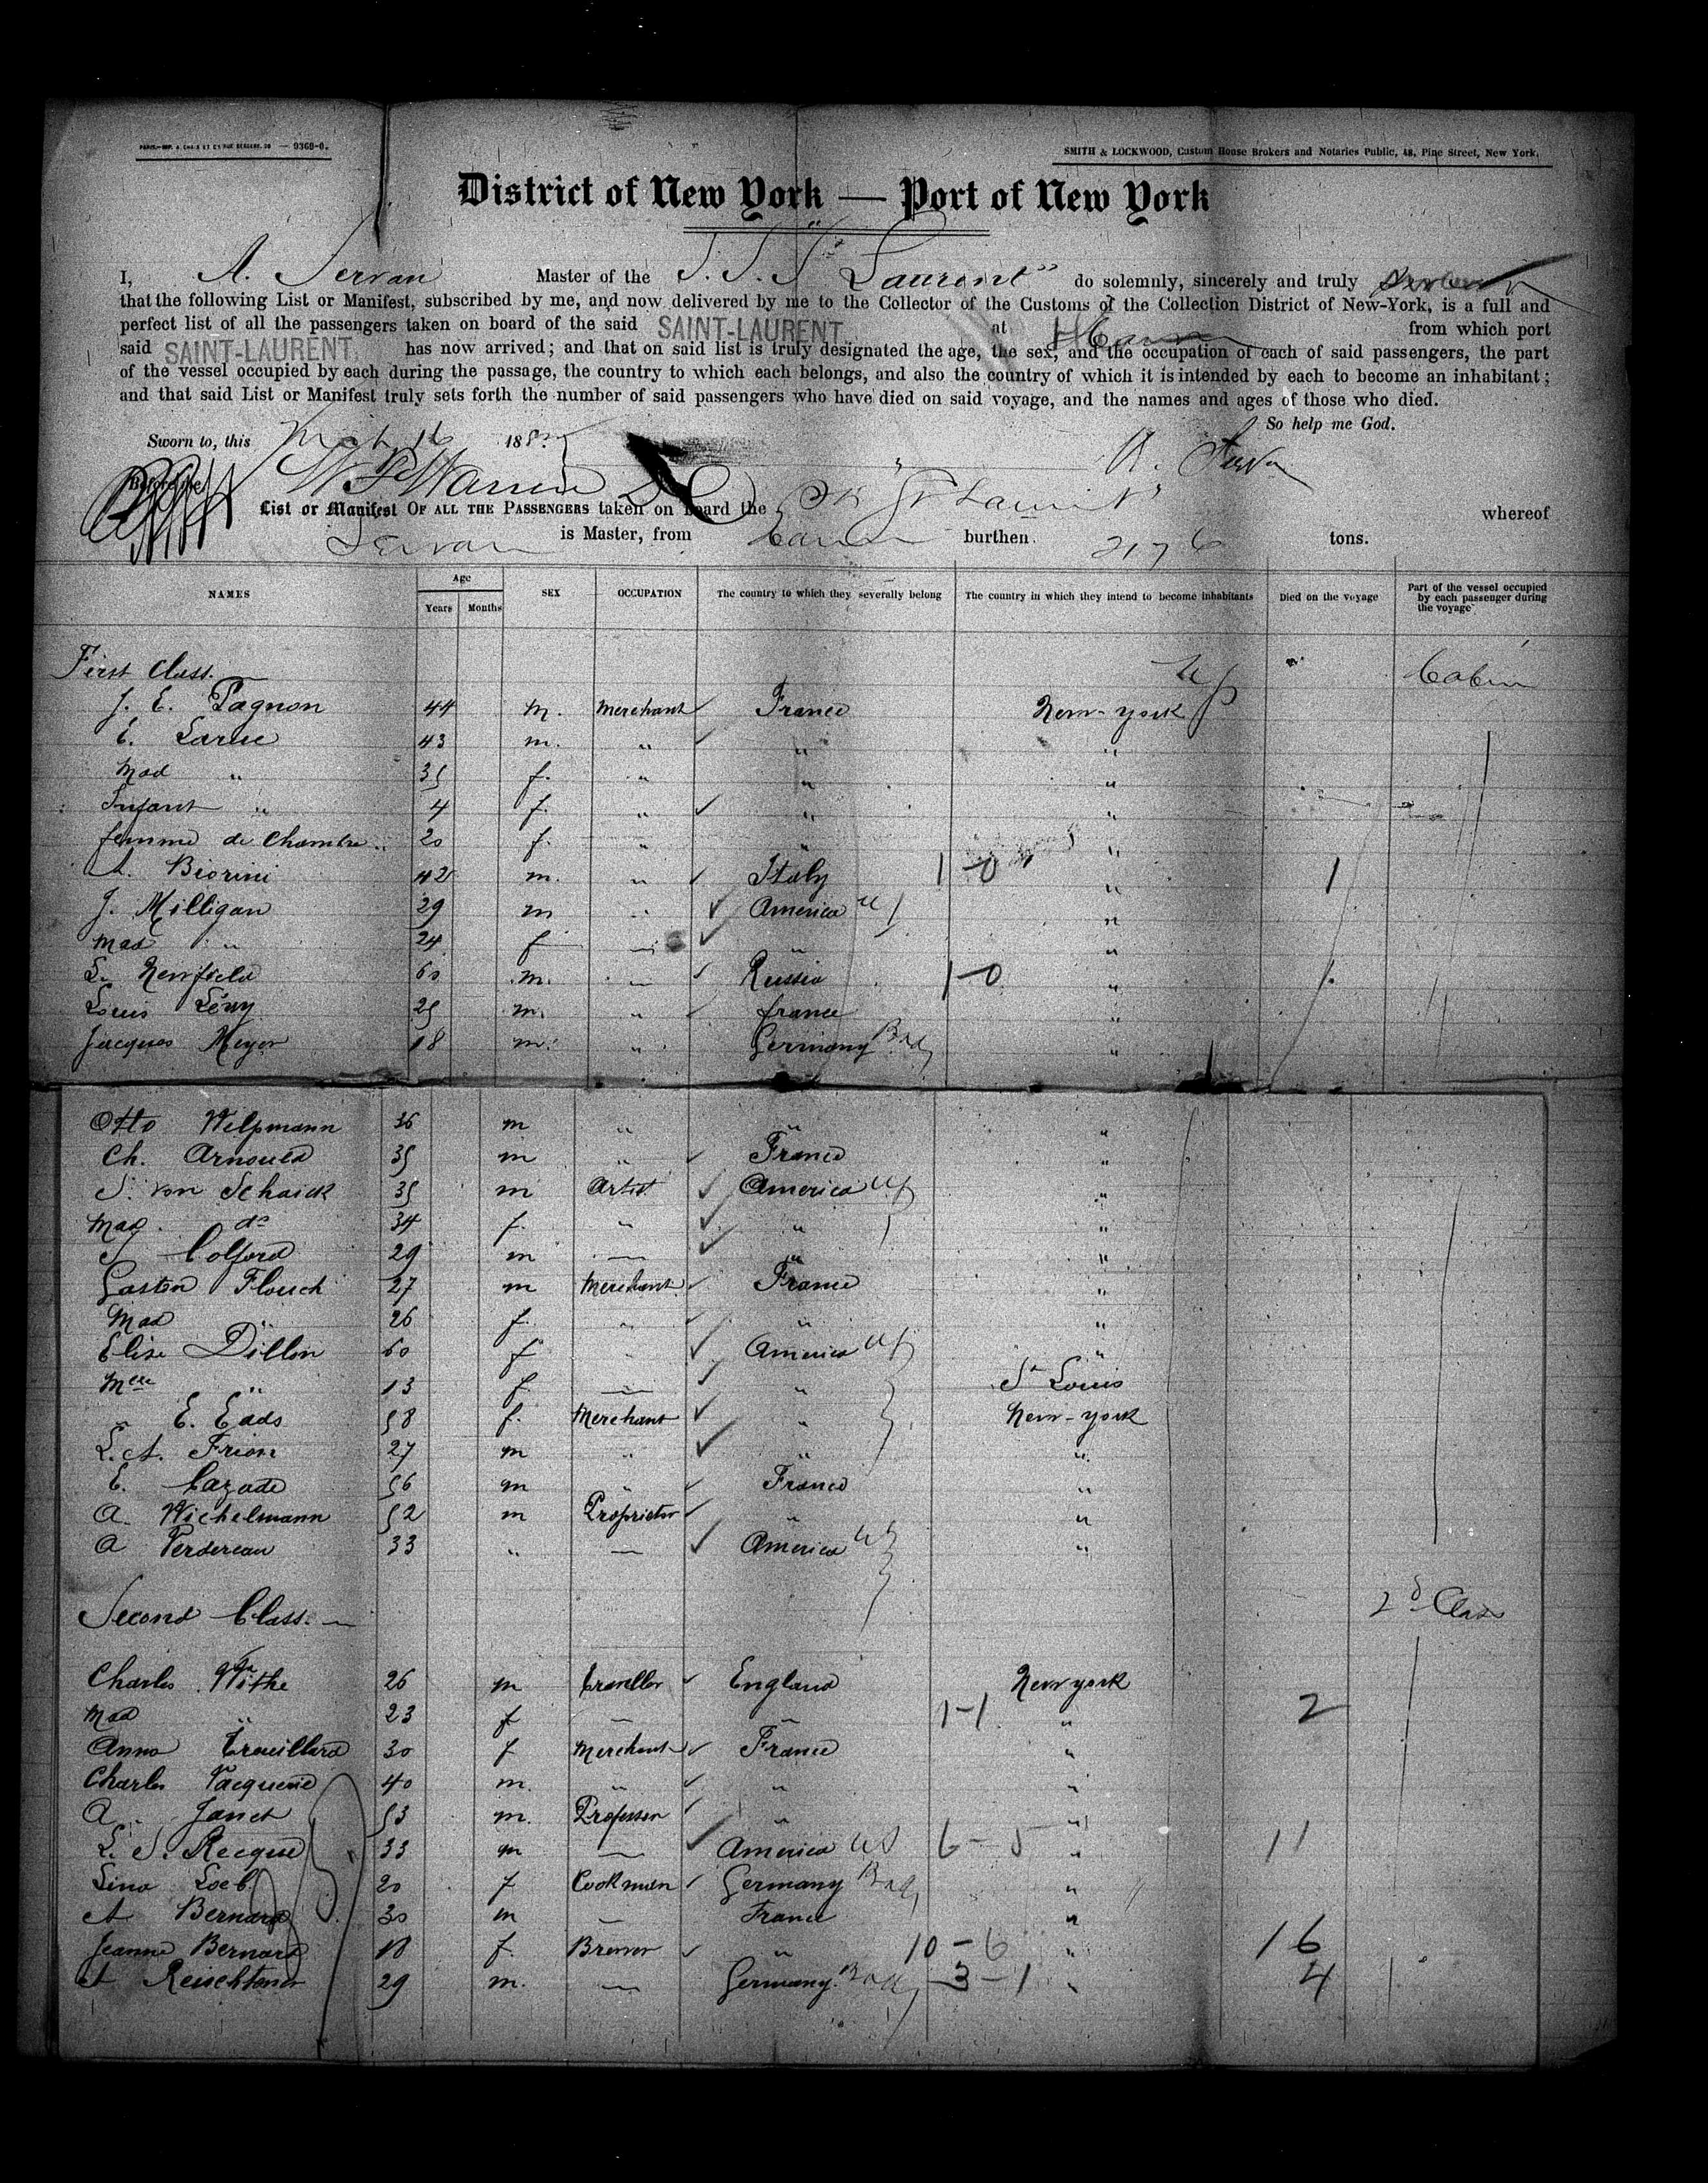 PARIS.—IMP. A. CHAIX ET Cie RUE BERGERE, 20 — 9369-0.
SMITH & LOCKWOOD, Custom House Brokers and Notaries Public, 48, Pine Street, New York.
District of New York — Port of New York
I, A. Servan Master of the S. S. "St Laurent" do solemnly, sincerely and truly
that the following List or Manifest, subscribed by me, and now delivered by me to the Collector of the Customs of the Collection District of New-York, is a full and
perfect list of all the passengers taken on board of the said SAINT-LAURENT at from which port
said SAINT-LAURENT has now arrived; and that on said list is truly designated the age, the sex, and the occupation of each of said passengers, the part
of the vessel occupied by each during the passage, the country to which each belongs, and also the country of which it is intended by each to become an inhabitant;
and that said List or Manifest truly sets forth the number of said passengers who have died on said voyage, and the names and ages of those who died.
So help me God.
Sworn to, this 16 188 A. Servan
Before me
List or Manifest OF ALL THE PASSENGERS taken on board the St Laurent whereof
Servan is Master, from burthen 2176 tons.
NAMES Age Years Months SEX OCCUPATION The country to which they severally belong The country in which they intend to become inhabitants Died on the voyage Part of the vessel occupied by each passenger during the voyage
First Class. Cabin
J. E. Pagnon 44 m. Merchant France New-york
E. Larue 43 m. " " "
Mad " 35 f. " " "
Infant " 4 f. " " "
femme de Chambre " 20 f. " " "
A. Biorini 42 m. " Italy 1-0 " 1
J. Milligan 29 m " America "
Mad " 24 f — " "
L. Newfield 60 m. — Russia 1-0 " 1
Louis Lévy 25 m. " france "
Jacques Meyer 18 m. " Germany Bad "
Otto Welpmann 36 m " " "
Ch. Arnould 35 m " France "
S. von Schaick 35 m Artist America US "
Mad. do 34 f. " " "
Colford 29 m — " "
Gaston Flouch 27 m Merchant France "
Mad " 26 f. " " "
Elise Dillon 60 f " America US "
Melle " 13 f. — " St Louis
" E. Eads 58 f. Merchant " New-york
L. A. Frion 27 m " " "
E. Cazade 56 m " France "
A. Wichelmann 52 m Proprietor " "
A Verdereau 33 " — America US "
Second Class — 2d Class
Charles Withe 26 m traveller England New york
Mad " 23 f — " 1-1 " 2
Anna Trouillard 30 f Merchant France "
Charles Vacquerie 40 m. " " "
A. Janet 53 m. Professor " "
L. S. Recque 33 m — America US 6-5 " 11
Lina Loeb 20 f Germany Bad "
A Bernard 30 m — France "
Jeanne Bernard 18 f. Brewer " 10-6 " 16
A 29 m. — Germany Bad 3-1 " 4